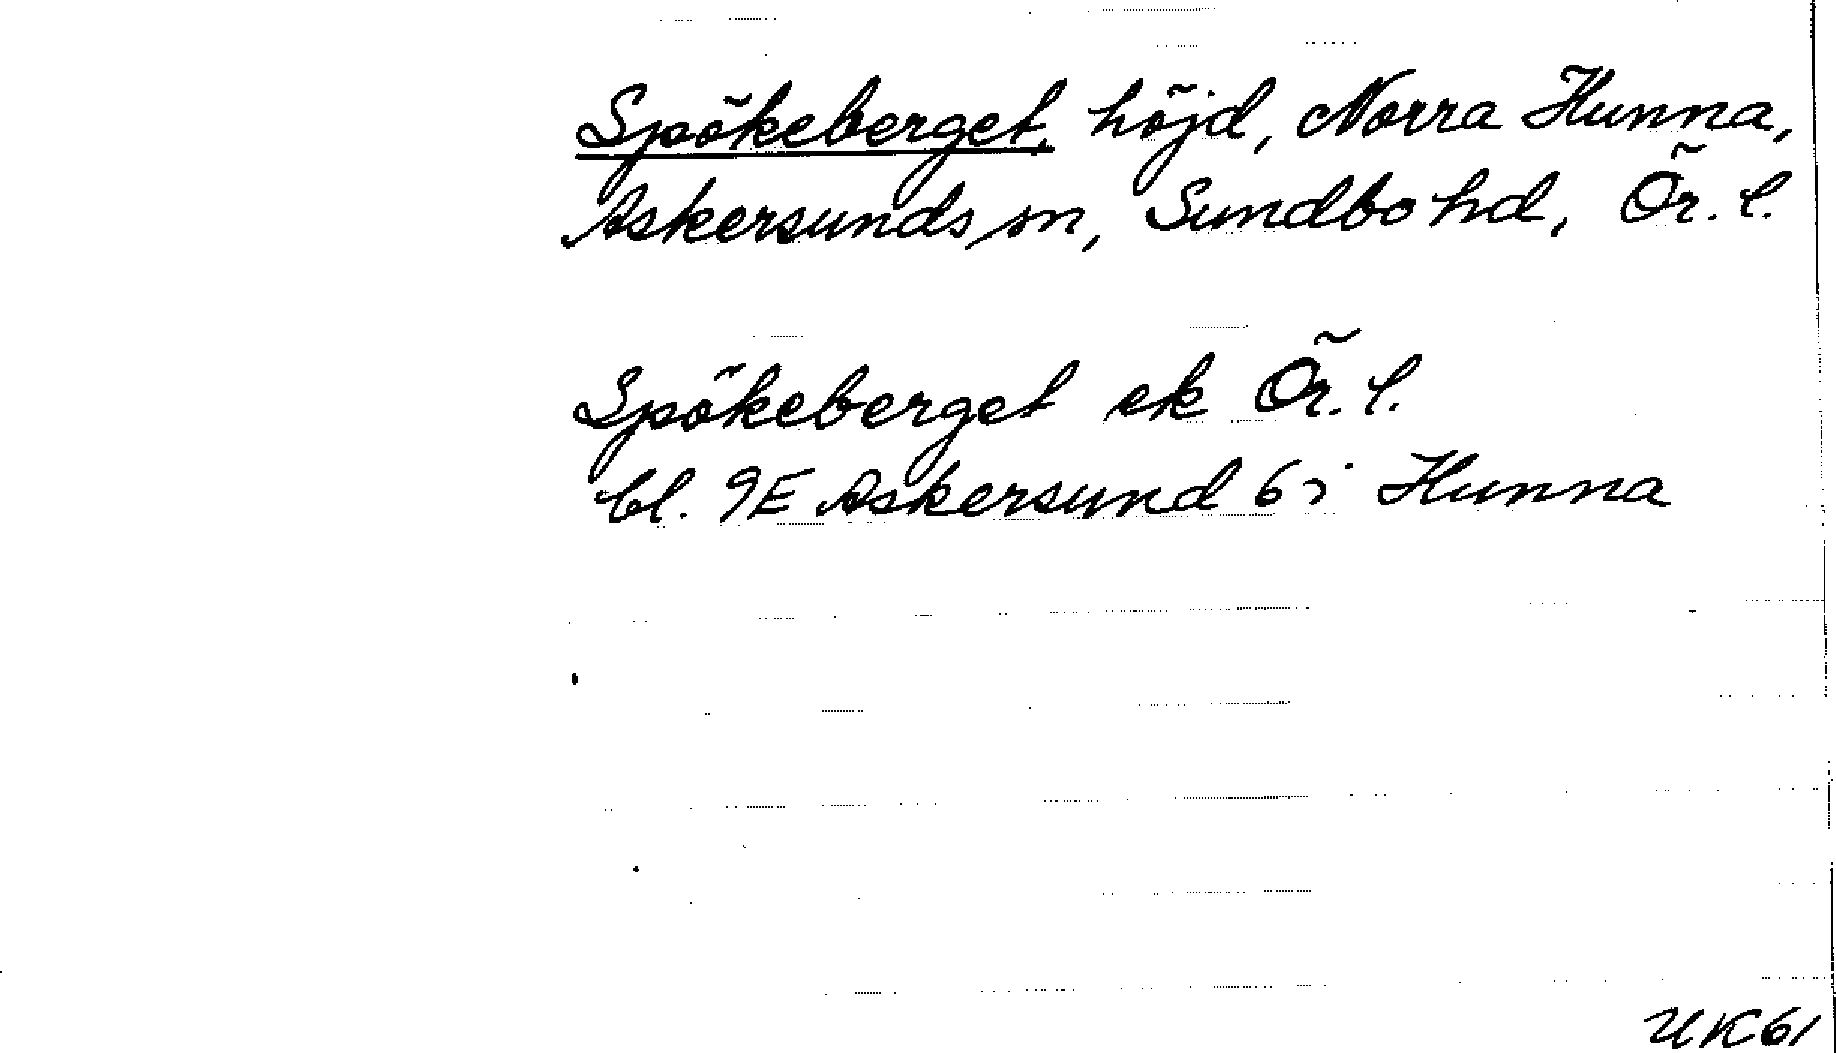 Spökeberget, höjd, Norra Hunna,
Askersunds sn, Sundbo hd, Ör. l.
Spökeberget ek Ör. l.
bl. 9E Askersund 6i Hunna
UK61